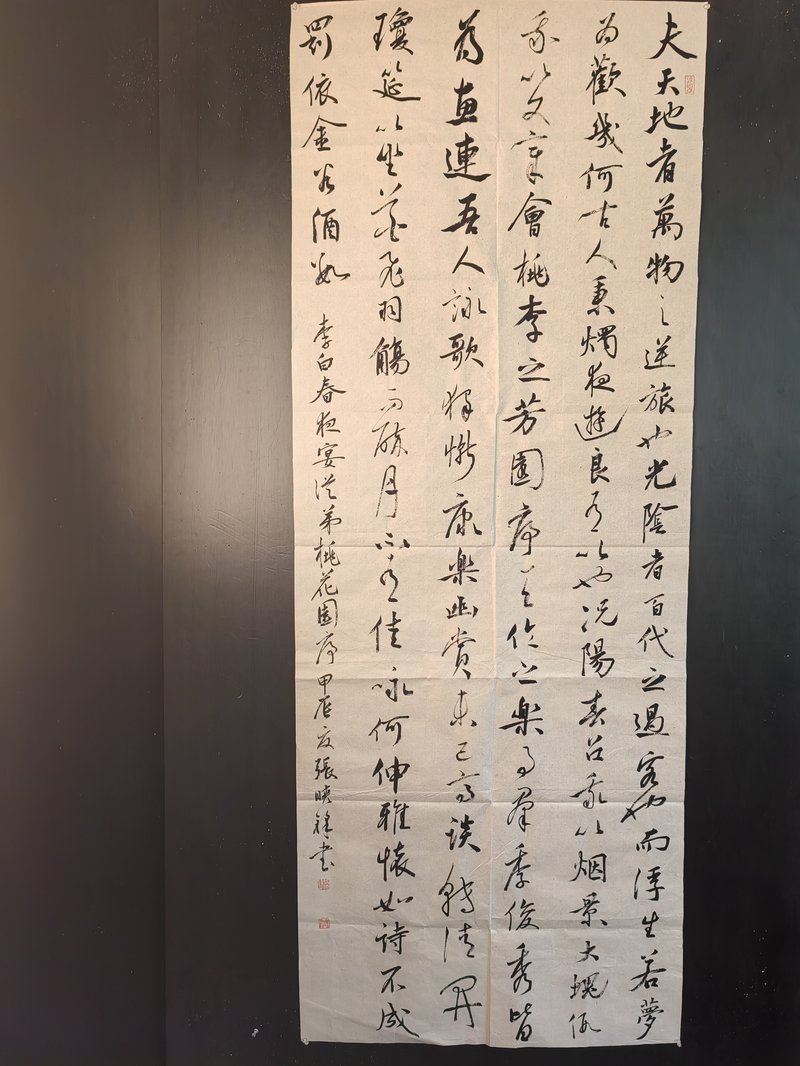 夫天地者萬物之逆旅也光陰者百代之過客也而浮生若夢
为歡幾何古人秉燭夜遊良有以也況陽春召我以烟景大塊假
我以文章會桃李之芳園序天倫之樂事羣季俊秀皆
為惠連吾人詠歌獨慚康樂幽賞未已高談轉清開
瓊筵以坐花飛羽觴而醉月不有佳咏何伸雅懷如詩不成
罰依金谷酒數
李白春夜宴從弟桃花園序甲辰夏張映鋒書